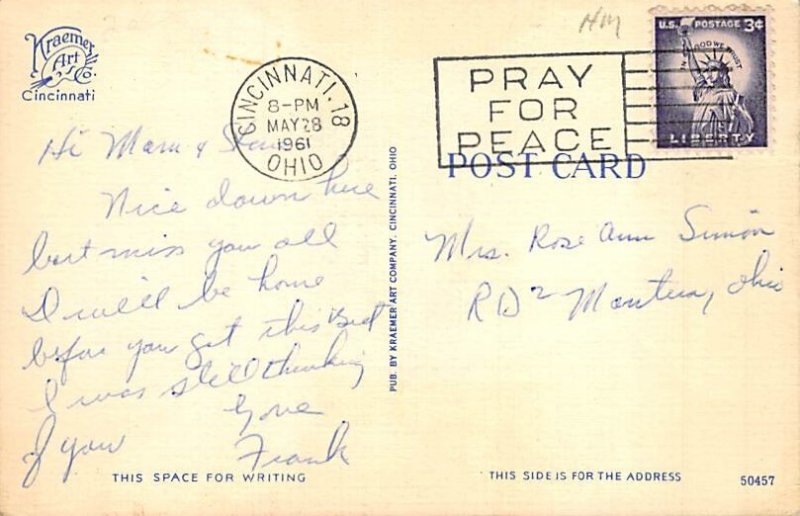 Kraemer
Art
Co.
Cincinnati
CINCINNATI, 18
8-PM
MAY 28
1961
OHIO
PRAY
FOR
PEACE
U.S. POSTAGE 3¢
IN GOD WE TRUST
LIBERTY
POST CARD
Hi Mom &
Nice down here
but miss you all
I will be home
before you get this But
I was still thinking
of you Love
Frank
PUB. BY KRAEMER ART COMPANY, CINCINNATI, OHIO
Mrs. Rose Ann Simon
RD 2 Mantua, Ohio
THIS SPACE FOR WRITING
THIS SIDE IS FOR THE ADDRESS
50457